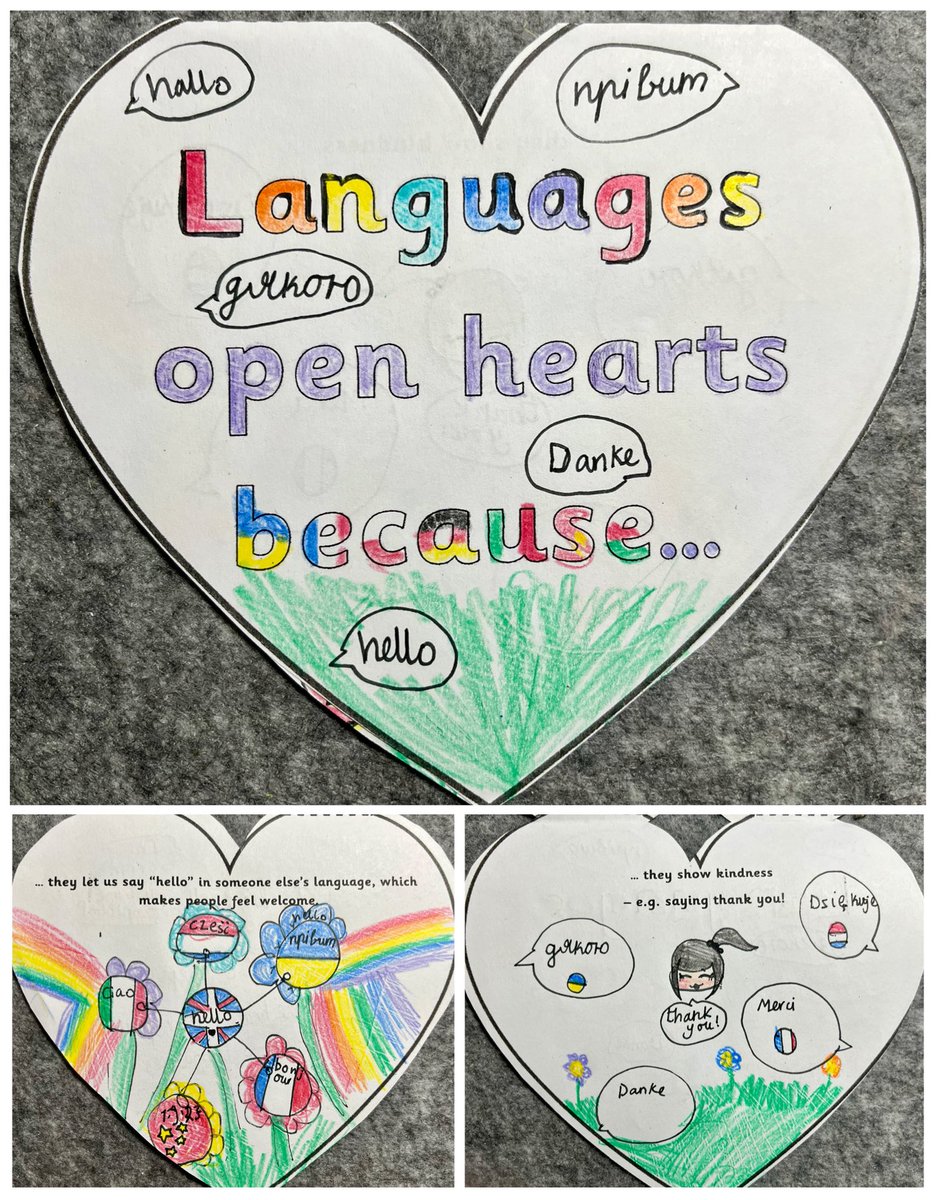 hallo
npiвum
Languages
gякою
open hearts
Danke
because...
hello
... they let us say “hello” in someone else’s language, which
makes people feel welcome.
cześć
hello
npiвum
Ciao
hello
bonj
our
... they show kindness
– e.g. saying thank you!
Dziękuje
gякою
thank
you!
Merci
Danke